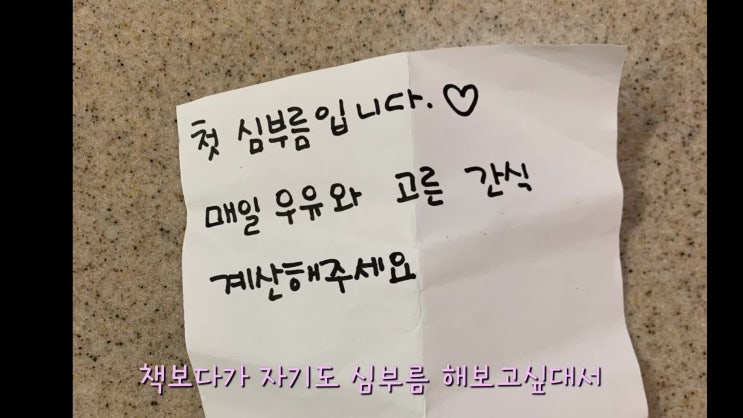 첫 심부름입니다.♡
매일 우유와 고른 간식
계산해주세요
책보다가 자기도 심부름 해보고싶대서